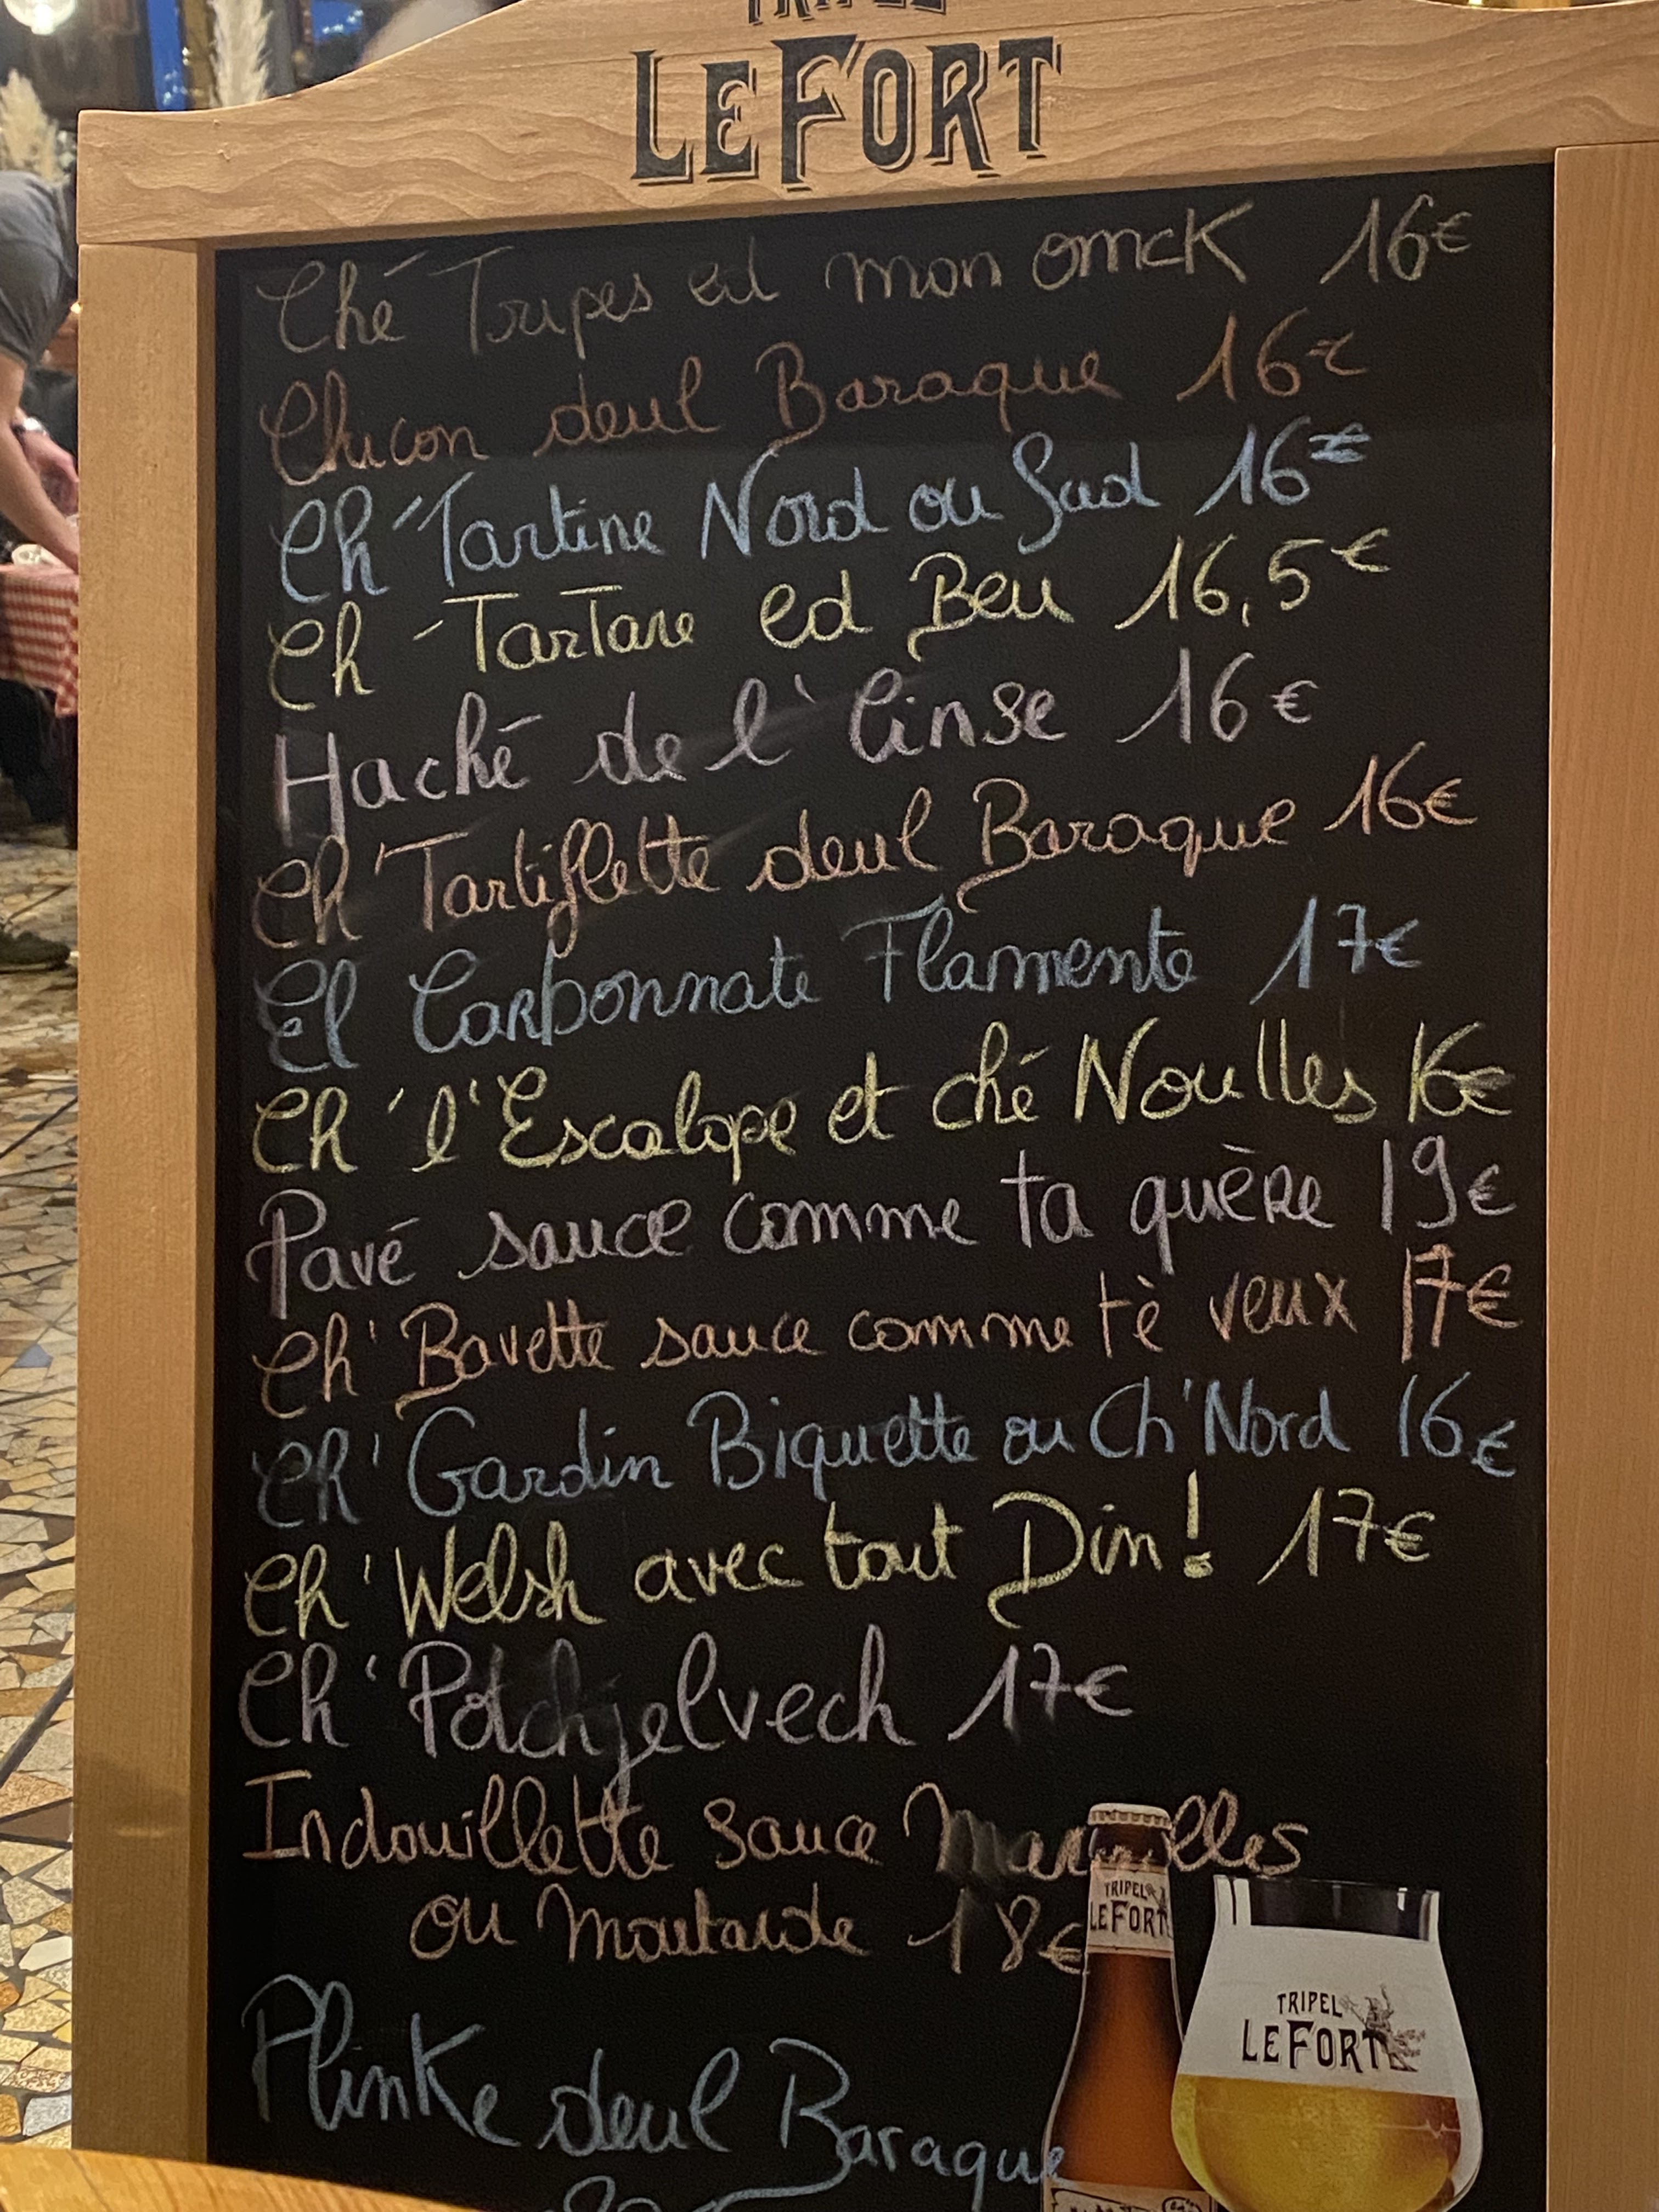 LEFORT
Ché Tripes ed mon omck 16€
Chicon deul Baraque 16€
Ch'Tartine Nord ou Sud 16€
Ch'Tartare ed Beu 16,5€
Haché de l'cinse 16€
Ch'Tartiflette deul Baraque 16€
El Carbonnate Flamente 17€
Ch'l'Escalope et ché Noulles 16€
Pavé sauce comme ta quère 19€
Ch'Bavette sauce comme tè veux 17€
Ch'Gardin Biquette ou Ch'Nord 16€
Ch'Welsh avec tout Din! 17€
Ch'Potchjelvech 17€
Indouillette sauce
ou Moutarde 18€
Plinke deul Baraque
TRIPEL
LEFORT
TRIPEL
LEFORT